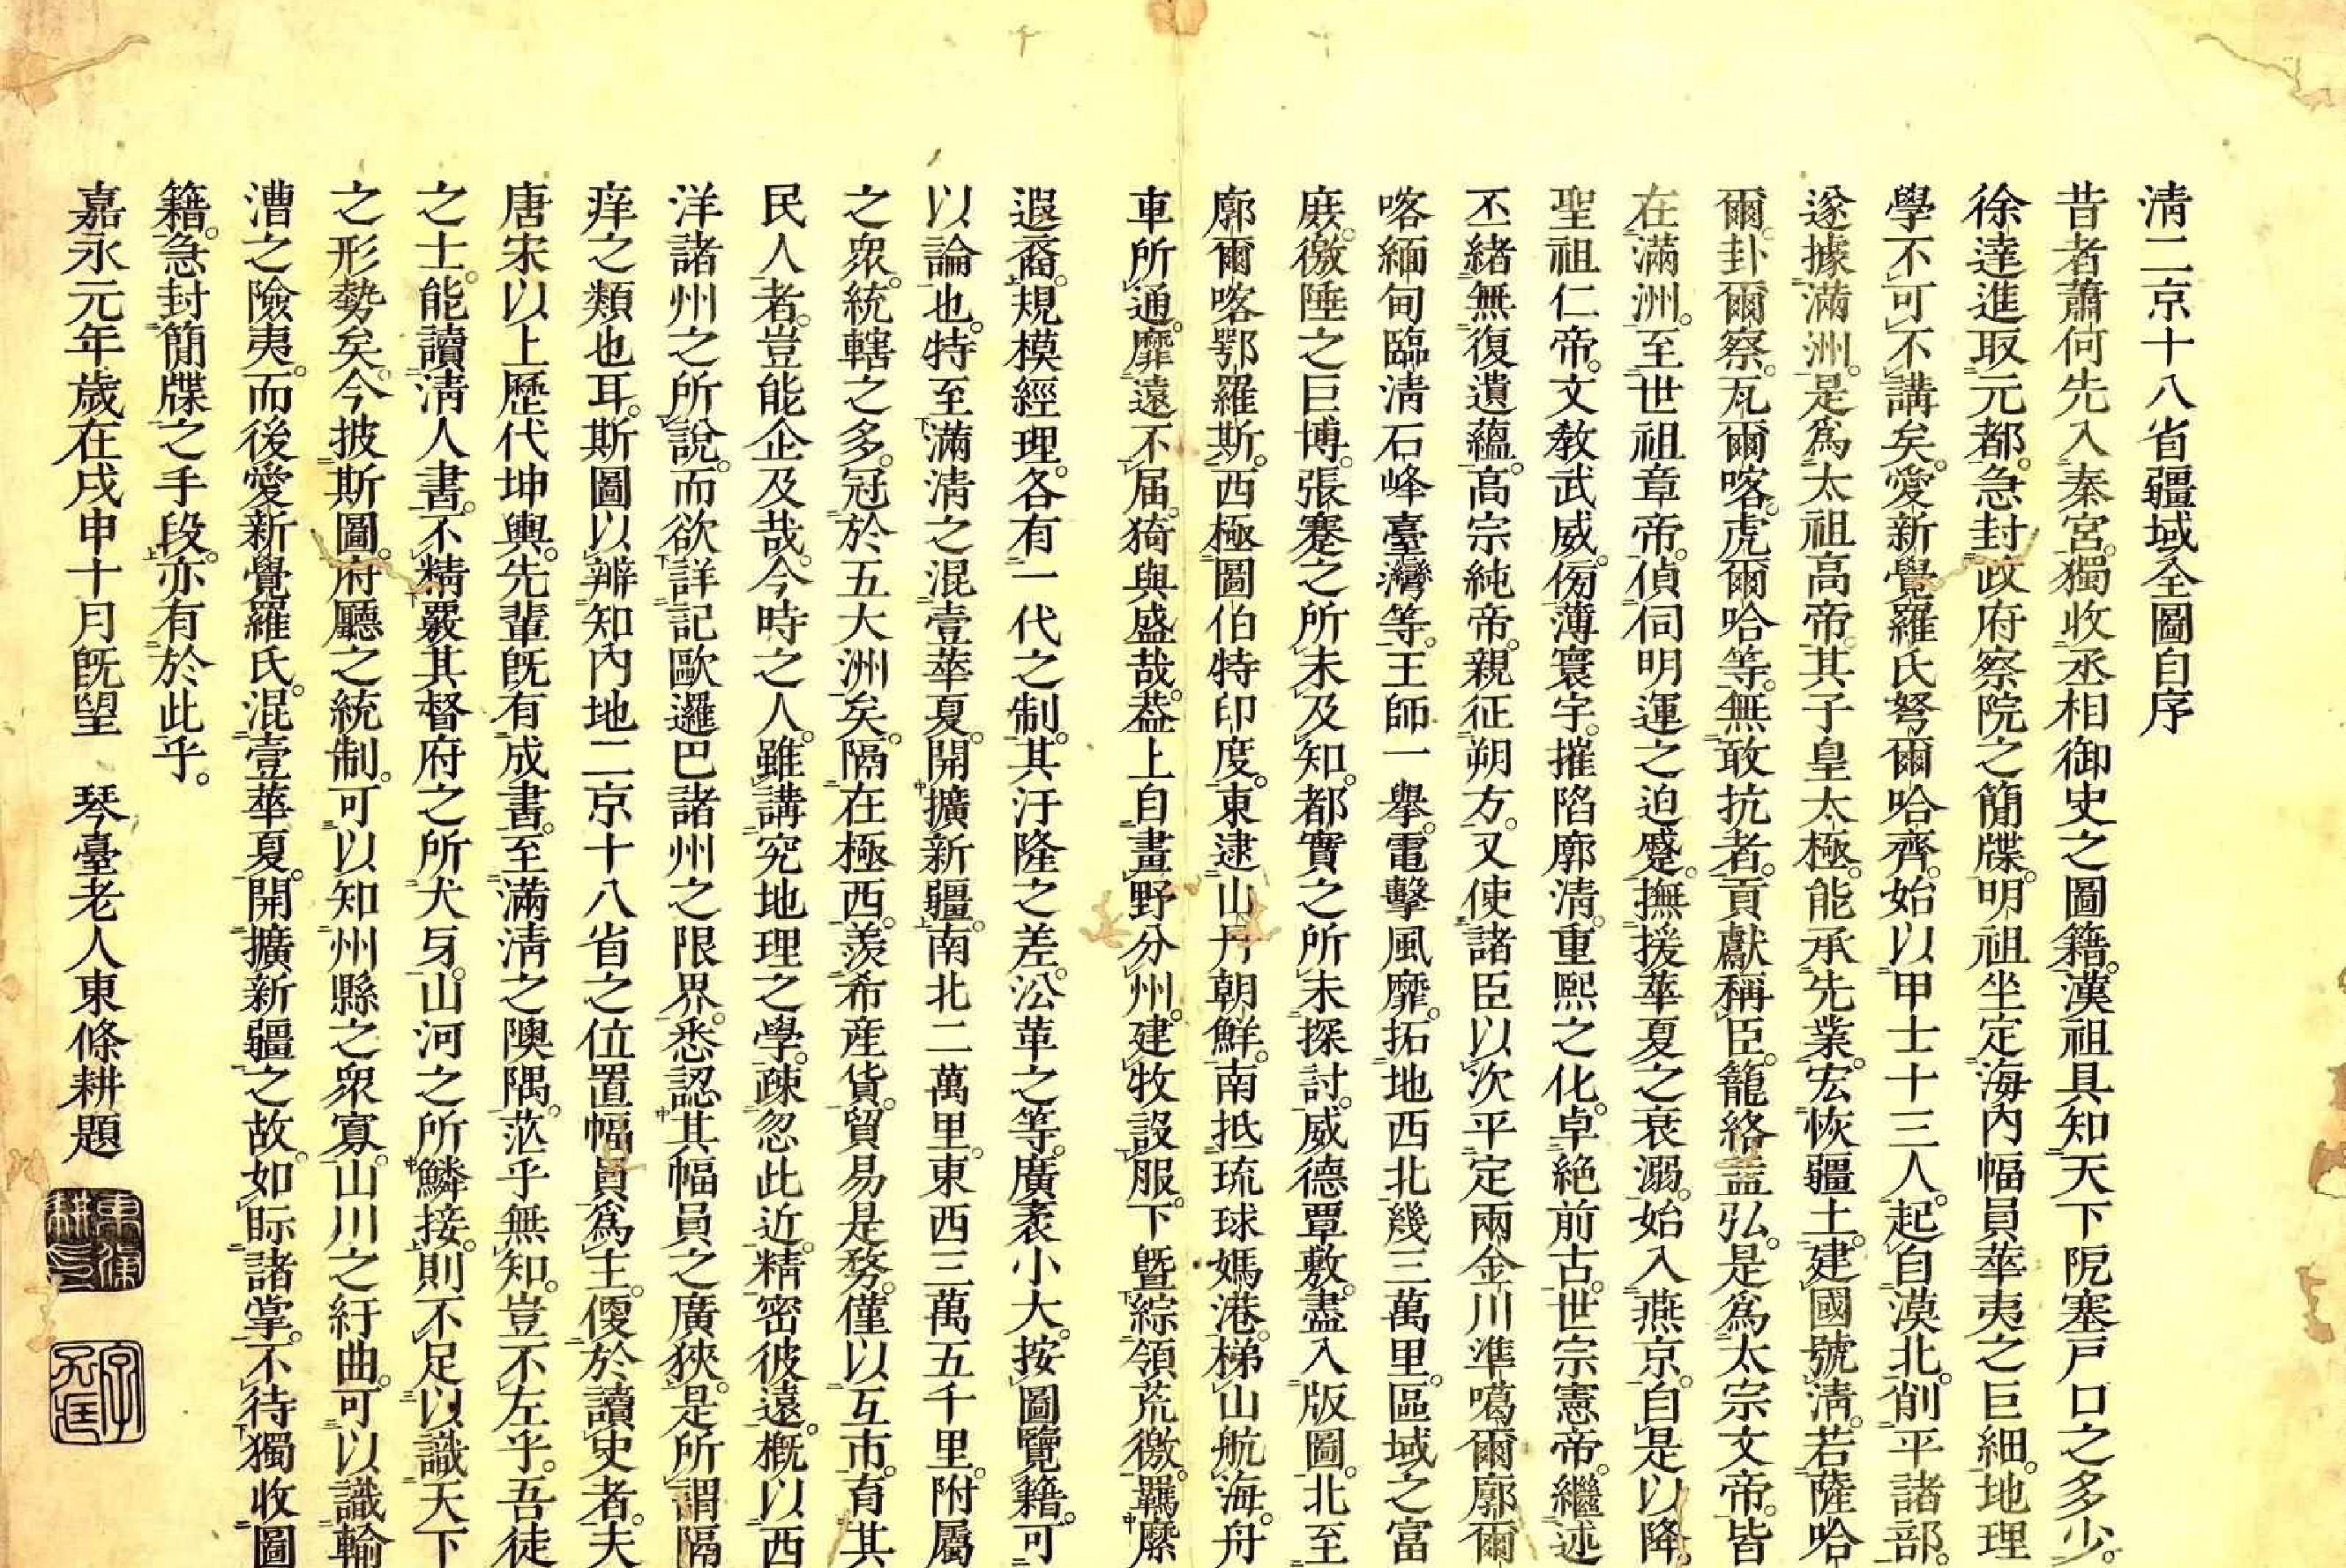 淸二京十八省疆域全圖自序
昔者蕭何先入秦宮。獨收丞相御史之圖籍。漢祖具知天下阨塞戸口之多少。
徐達進取元都。急封政府察院之簡牒。明祖坐定海內幅員華夷之巨細。地理
學不可不講矣。愛新覺羅氏弩爾哈齊。始以甲士十三人。起自漠北。削平諸部。
遂據滿洲。是爲太祖高帝。其子皇太極。能承先業。宏恢疆土。建國號淸。若薩哈
爾。卦爾察。瓦爾喀。虎爾哈等。無敢抗者。貢獻稱臣。籠絡益弘。是爲太宗文帝。皆
在滿洲。至世祖章帝。偵伺明運之迫蹙。撫援華夏之衰溺。始入燕京。自是以降。
聖祖仁帝。文敎武威。傍薄寰宇。摧陷廓淸。重熙之化。卓絶前古。世宗憲帝。繼述
丕緖。無復遺蘊。高宗純帝。親征朔方。又使諸臣以次平定兩金川準噶爾廓爾
喀緬甸臨淸石峰臺灣等。王師一擧。電擊風靡。拓地西北幾三萬里。區域之富
庶。徼陲之巨博。張騫之所未及知。都實之所未探討。威德覃敷。盡入版圖。北至
廓爾喀鄂羅斯。西極圖伯特印度。東逮山丹朝鮮。南抵琉球媽港。梯山航海。舟
車所通。靡遠不届。猗與盛哉。葢上自畫野分州。建牧設服。下曁綜領荒徼。羈縻
遐裔。規模經理。各有一代之制。其汙隆之差。㳂革之等。廣袤小大。按圖覽籍。可
以論也。特至滿淸之混壹華夏。開擴新疆。南北二萬里。東西三萬五千里。附屬
之衆。統轄之多。冠於五大洲矣。隔在極西。羨希產貨。貿易是務。僅以互市。有其
民人者。豈能企及哉。今時之人。雖講究地理之學。疎忽此近。精密彼遠。槪以西
洋諸州之所說。而欲詳記歐邏巴諸州之限界。悉認其幅員之廣狹。是所謂隔
痒之類也耳。斯圖以辨知內地二京十八省之位置幅員爲主。便於讀史者。夫
唐宋以上歷代坤輿。先輩旣有成書。至滿淸之隩隅。茫乎無知。豈不左乎。吾徒
之士。能讀淸人書。不精覈其督府之所犬牙。山河之所鱗接。則不足以識天下
之形勢矣。今披斯圖。府廳之統制。可以知州縣之衆寡。山川之紆曲。可以識輸
漕之險夷。而後愛新覺羅氏。混壹華夏。開擴新疆之故。如眎諸掌。不待獨收圖
籍。急封簡牒之手段。亦有於此乎。
嘉永元年歲在戊申十月旣望　琴臺老人東條耕題